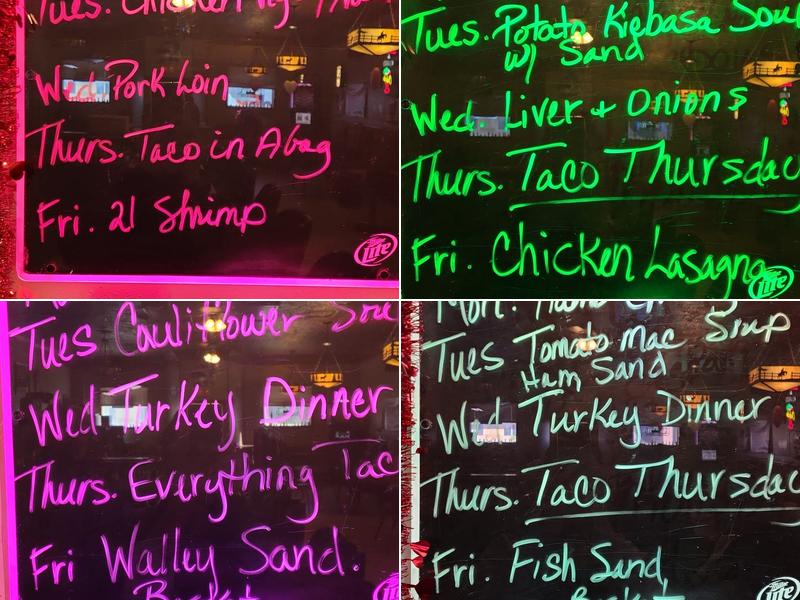 Tues. Chicken
Wed Pork Loin
Thurs. Taco in Abag
Fri. 21 Shrimp
Miller
Lite
Tues. Potato Kiebasa Soup
w/ Sand
Wed. Liver + Onions
Thurs. Taco Thursday
Fri. Chicken Lasagna
Lite
Tues Cauliflower Sou
Wed Turkey Dinner
Thurs. Everything Tac
Fri Walley Sand.
Basket
Mon.
Tues Tomato Mac Soup
Ham Sand
Wed Turkey Dinner
Thurs. Taco Thursday
Fri. Fish Sand
Basket
Lite